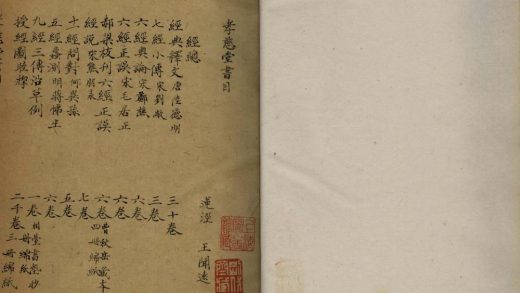 孝慈堂書目
蓮涇 王聞遠
經總
經典釋文 唐陸德明 三十卷
七經小傳 宋劉敞 三卷
六經奧論 宋鄭樵 六卷
六經正誤 宋毛居正 六卷
郝梁校刊六經正誤 六卷
經說 宋熊朋來 七卷
十經問對 何異孫 五卷
五經蠡測 明蔣悌生 六卷
九經三傳沿革例 一卷
授經圖 二十卷 三冊綿紙